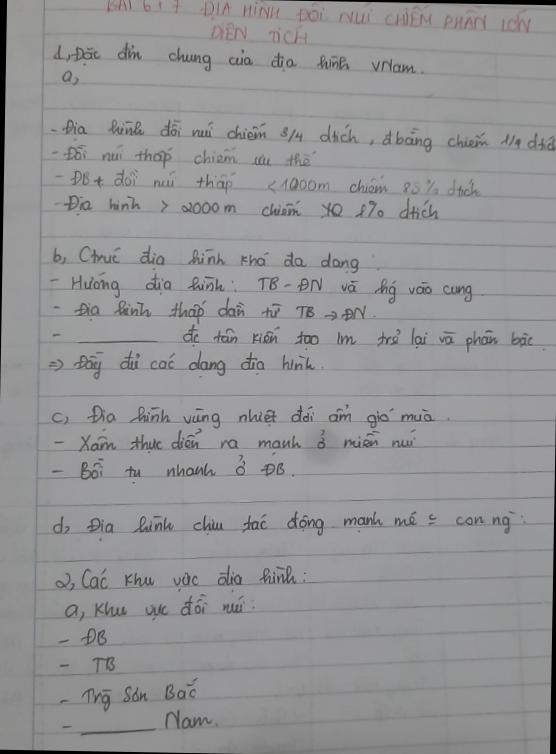 BÀI 6+7 ĐỊA HÌNH ĐỒI NÚI CHIẾM PHẦN LỚN
DIỆN TÍCH
1, Đặc đm chung của địa hình VNam.
a,
- Địa hình đồi núi chiếm 3/4 dtích, đbằng chiếm 1/4 dtích
- Đồi núi thấp chiếm ưu thế
- ĐB + đồi núi thấp <1000m chiếm 85% dtích
- Địa hình > 2000m chiếm 1% dtích
b, Ctrúc địa hình khá đa dạng
- Hướng địa hình: TB-ĐN và hg vòng cung
- Địa hình thấp dần từ TB → ĐN.
- ______ đc tân kiến tạo lm trẻ lại và phân bậc
=> Đầy đủ các dạng địa hình.
c, Địa hình vùng nhiệt đới ẩm gió mùa.
- Xâm thực diễn ra mạnh ở miền núi
- Bồi tụ nhanh ở ĐB.
d, Địa hình chịu tác động mạnh mẽ con ng`:
2, Các khu vực địa hình:
a, Khu vực đồi núi:
- ĐB
- TB
- Trg Sơn Bắc
- ______ Nam.